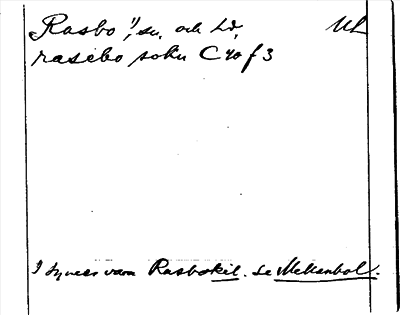 Rasbo 1), sn. och hd. Ul
rasebo sokn C 40 f 3
1 synes vara Rasbokil. Se Mellanbol.